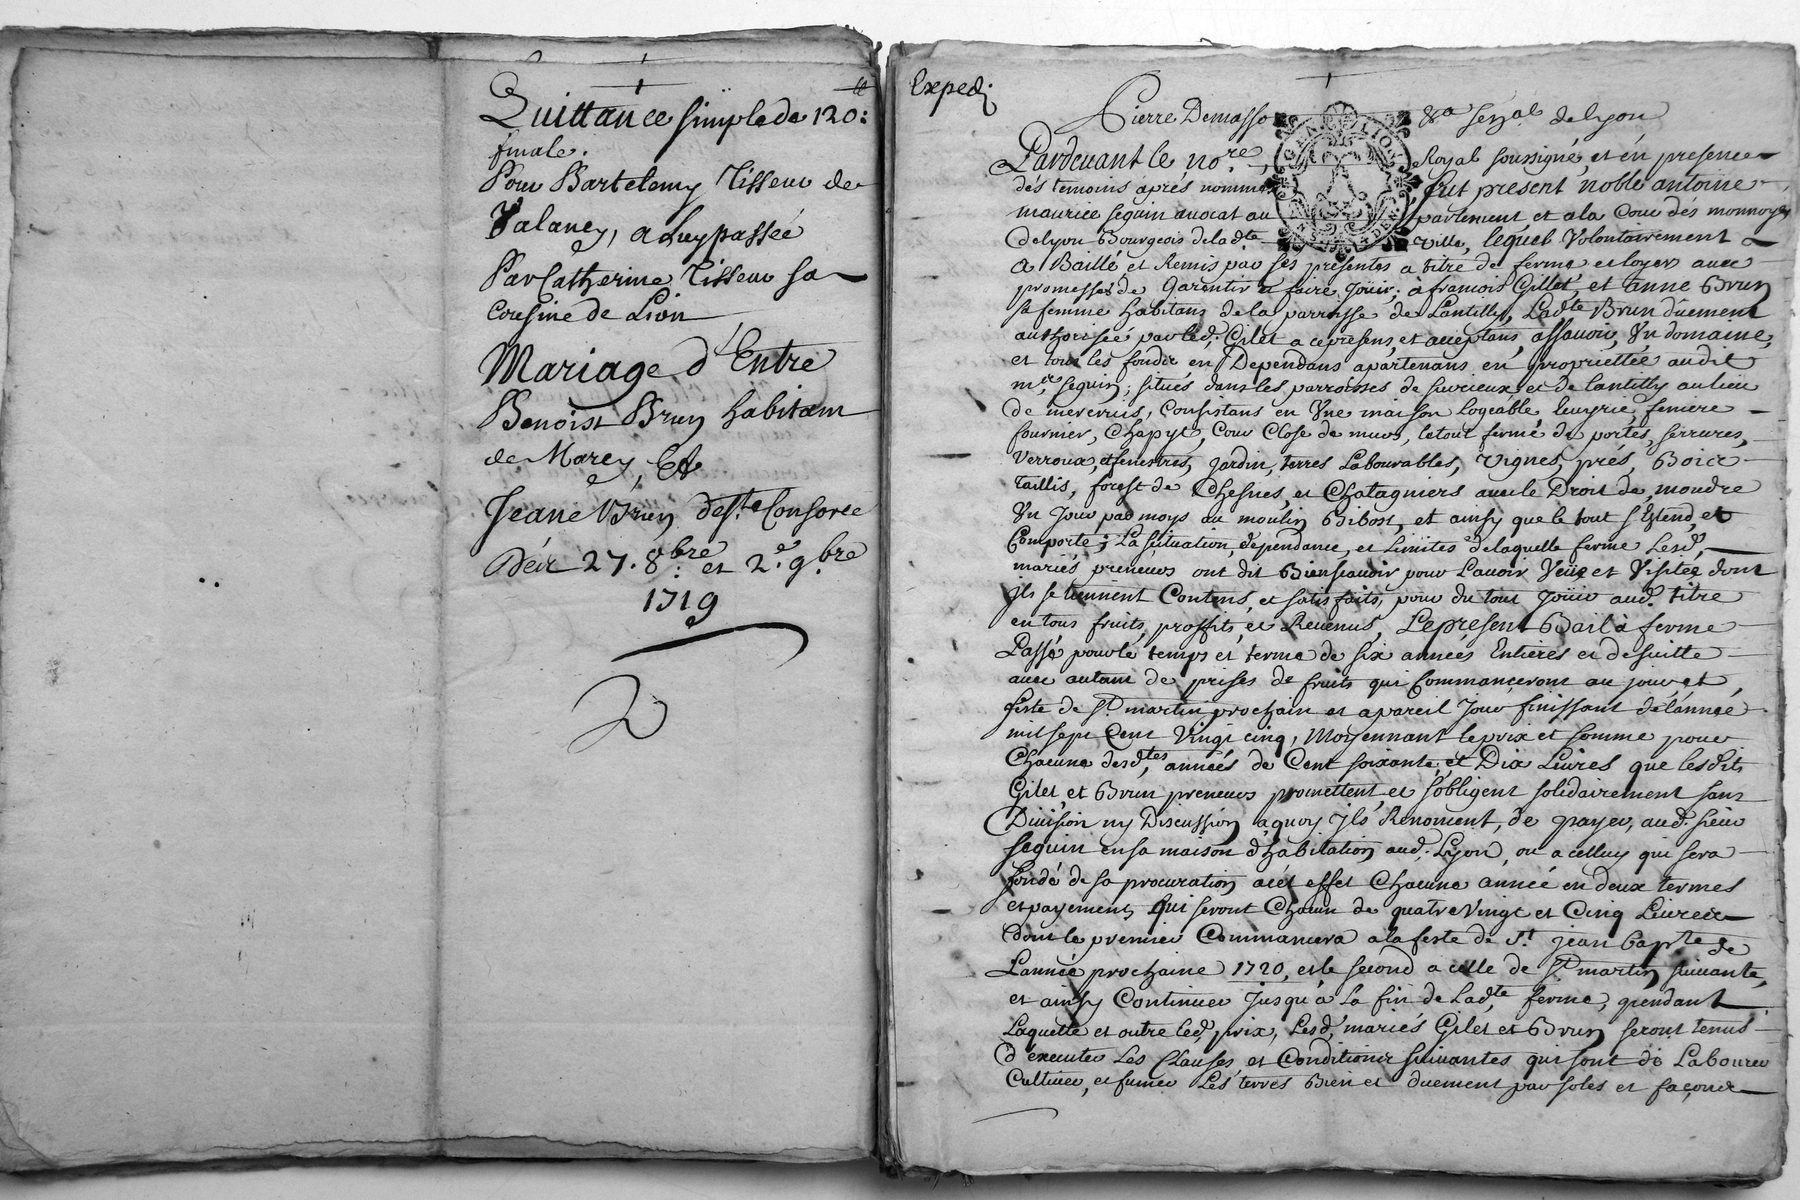 Quittance simple de 120 ll:
finale.
Pour Bartelemy Tisseur de
Jalaney, a luy passée
Par Catherine Tisseur sa
cousine de Lion
Mariage d'Entre
Benoist Brun habitant
de Marcy, Et
Jeane Brun des.te Consorce
Déir 27. 8.bre et 2.e 9.bre
1719
Exped:
Pierre Demasso de lyon
Pardevant le no.re Royal soussigné, et én presence
dés temoins aprés nommés fut present noble antoine
maurice seguin avocat au parlement et a la Cour dés monnoyes
de lyon Bourgeois de lad.te ville, lequel Volontairement
a Baillé et Remis par ses presentes a titre de ferme et loyer avec
promesses de garentir et faire Joüir, a francois Gillet, et anne Brun
sa femme habitans de la parroisse de Lantilly, Lad.te Brun düement
authorisée par led. Gilet a ce presens, et acceptans, assavoir, Un domaine,
et tous les fondz en Dependans apartenans en proprietée audit
m.r seguin; situés dans les parroisses de sivrieux et de Lantilly au lieu
de mercruis, Consistans en Vne maison logeable, Ecuyrie, feniere
fournier, Chapyt, Cour Close de murs, le tout fermé de portes, serrures,
verroux, et fenestres, jardin, terres Labourables, vignes, prés, Boix
taillis, forest de Chesnes, et Chatagniers avec le Droit de moudre
Un Jour par moys au moulin Ribost, et ainsy que le tout s'Etend, et
Comporte; La scituation, dependance, et Limites de laquelle ferme Lesd.
mariés preneurs ont dit Bien scavoir pour L'avoir Veüe et Visitée dont
jls se tiennent Contens, et satisfaits, pour du tout Joüir aud. titre
en tous fruits, proffits, et Revenus, Le present Bail à ferme
Passé pour le temps et terme de six années Entieres et de suitte
avec autant de prises de fruits qui Commanceront au jour et
feste de S.t martin prochain et a pareil Jour finissant de l'année
mil sept Cent Vingt cinq, Moyennant le prix et somme pour
Chacune desd.tes années de Cent soixante et Dix Livres que lesdits
Gilet, et Brun preneurs promettent, et s'obligent solidairement sans
Division ny Discussion a quoy jls Renoncent, de payer, aud. sieur
seguin en sa maison d'habitation aud. Lyon, ou a celluy qui sera
fondé de sa procuration a cet effet Chacune année en deux termes
et payement, qui seront Chacun de quatre Vingt et Cinq Livres
dont le premier Commancera a la feste de S.t jean bap.te de
L'année prochaine 1720, et le second a celle de S.t martin suivante,
et ainsy Continuer jusqu'à la fin de Lad.te ferme, pendant
Laquelle et outre led. prix, Lesd. mariés Gilet et Brun seront tenus
d'éxecuter Les Clauses et Conditions suivantes qui sont de Labourer
Cultiver, et fumer Les terres Bien et duement par soles et façons